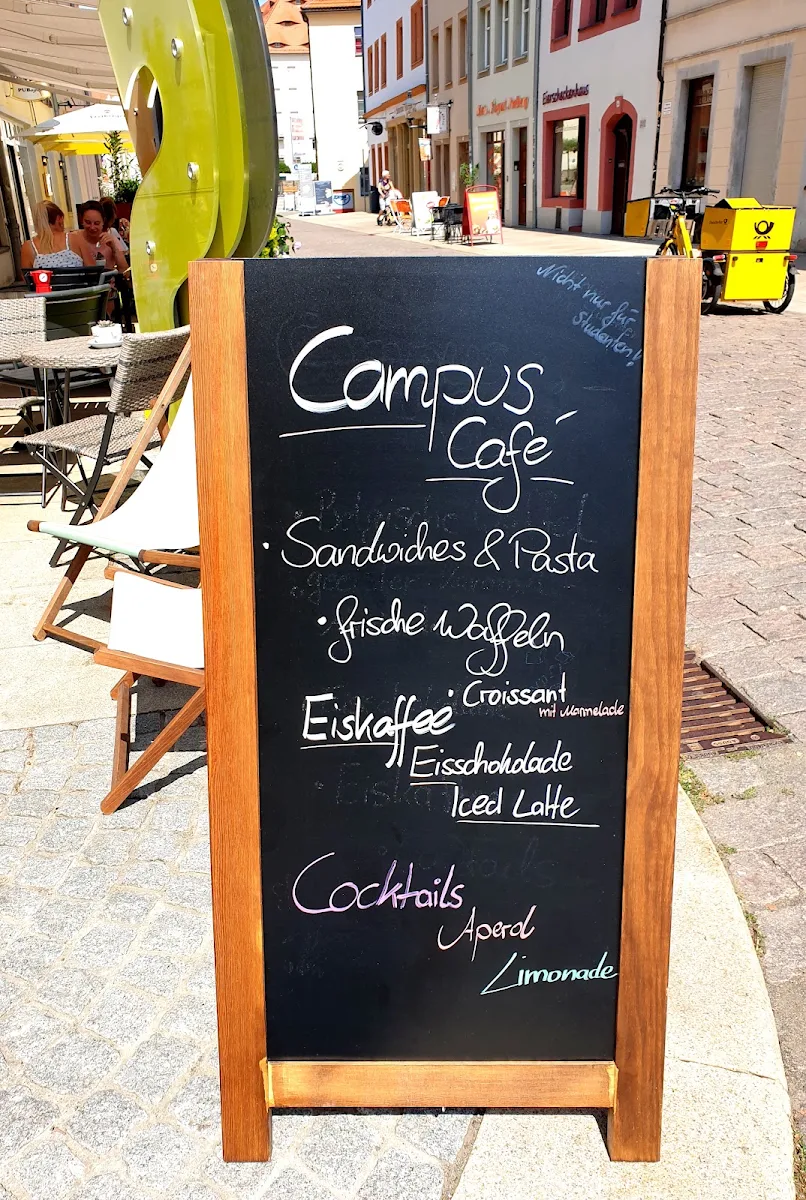 Nicht nur für
Studenten!
Campus
Café
• Sandwiches & Pasta
• frische Waffeln
• Croissant
mit Marmelade
Eiskaffee
Eisschokolade
Iced Latte
Cocktails
Aperol
Limonade